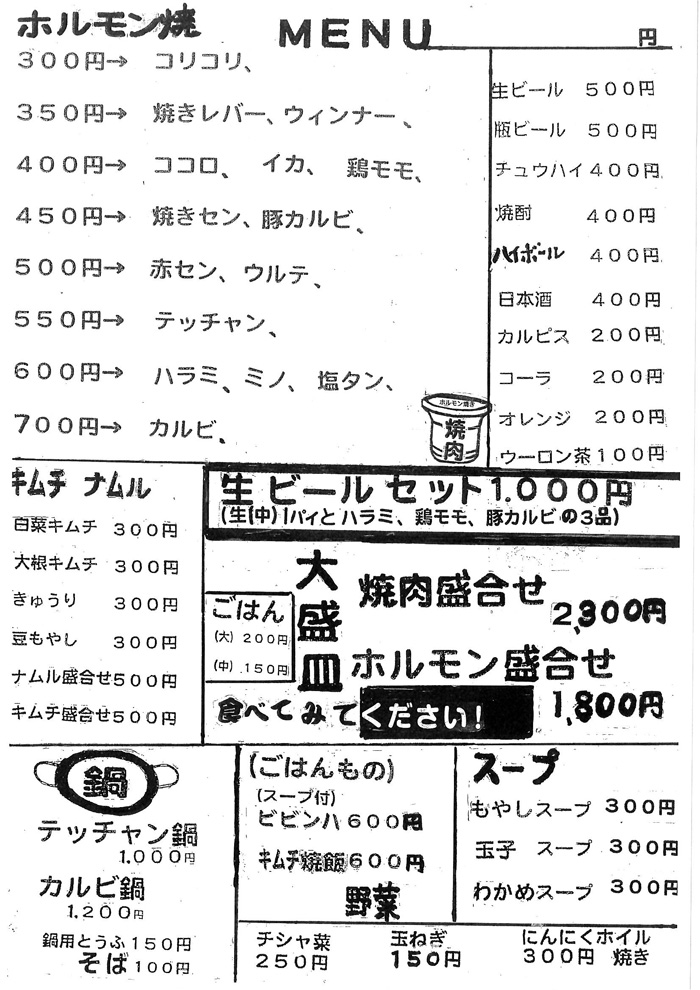 ホルモン焼
MENU
円
300円→ コリコリ、
350円→ 焼きレバー、ウィンナー、
400円→ ココロ、イカ、鶏モモ、
450円→ 焼きセン、豚カルビ、
500円→ 赤セン、ウルテ、
550円→ テッチャン、
600円→ ハラミ、ミノ、塩タン、
700円→ カルビ、
生ビール 500円
瓶ビール 500円
チュウハイ 400円
焼酎 400円
ハイボール 400円
日本酒 400円
カルピス 200円
コーラ 200円
オレンジ 200円
ウーロン茶 100円
ホルモン焼き
焼肉
キムチ ナムル
白菜キムチ 300円
大根キムチ 300円
きゅうり 300円
豆もやし 300円
ナムル盛合せ 500円
キムチ盛合せ 500円
生ビールセット1.000円
(生(中)1パィと ハラミ、鶏モモ、豚カルビの3品)
ごはん
(大) 200円
(中) .150円
大盛皿
焼肉盛合せ
2,300円
ホルモン盛合せ
1,800円
食べてみてください!
鍋
テッチャン鍋
1.000円
カルビ鍋
1.200円
鍋用とうふ 150円
そば 100円
(ごはんもの)
(スープ付)
ビビンハ 600円
キムチ焼飯 600円
スープ
もやしスープ 300円
玉子 スープ 300円
わかめスープ 300円
野菜
チシャ菜
250円
玉ねぎ
150円
にんにくホイル
300円 焼き